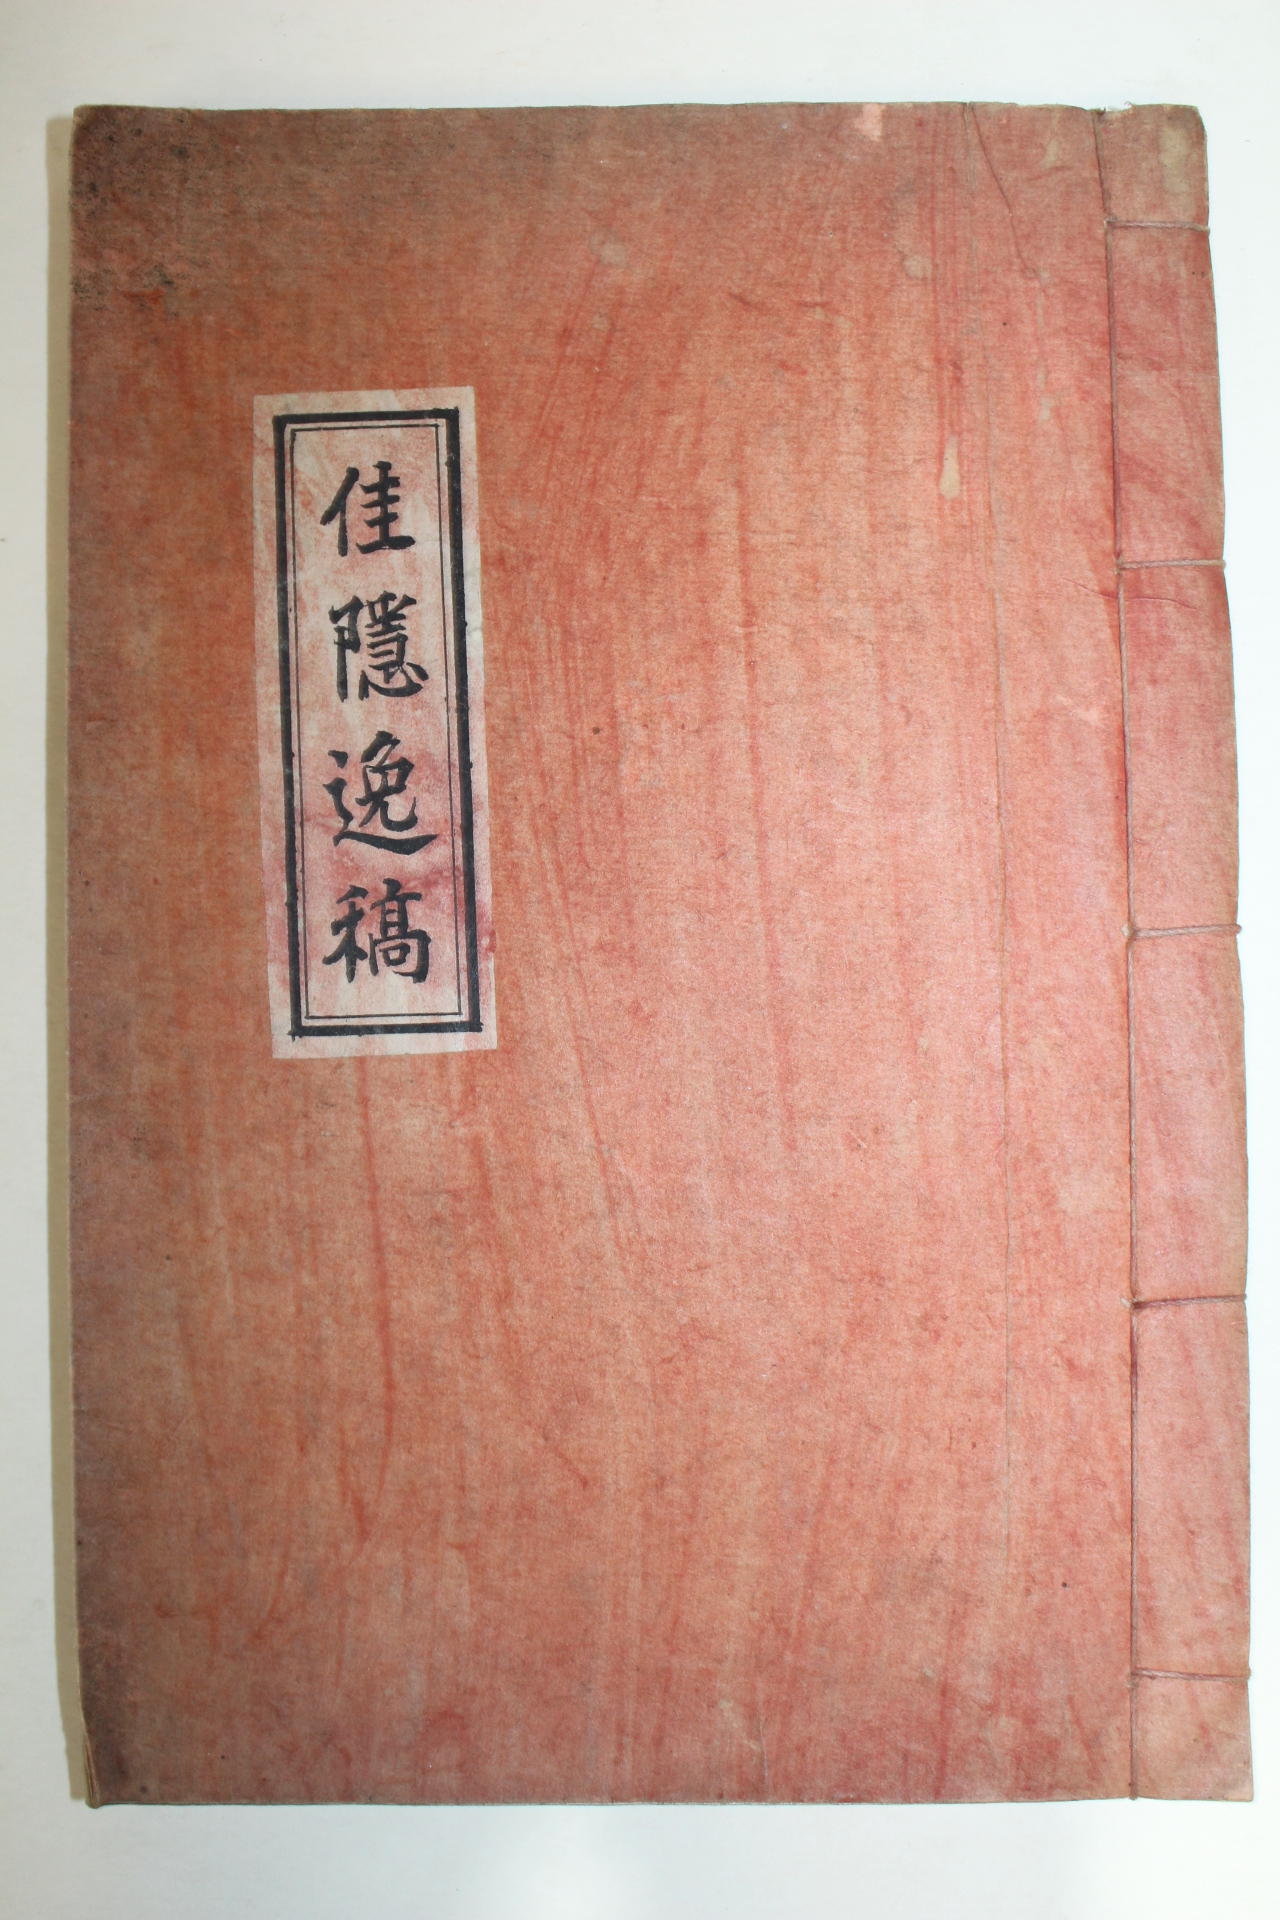 佳隱逸稿